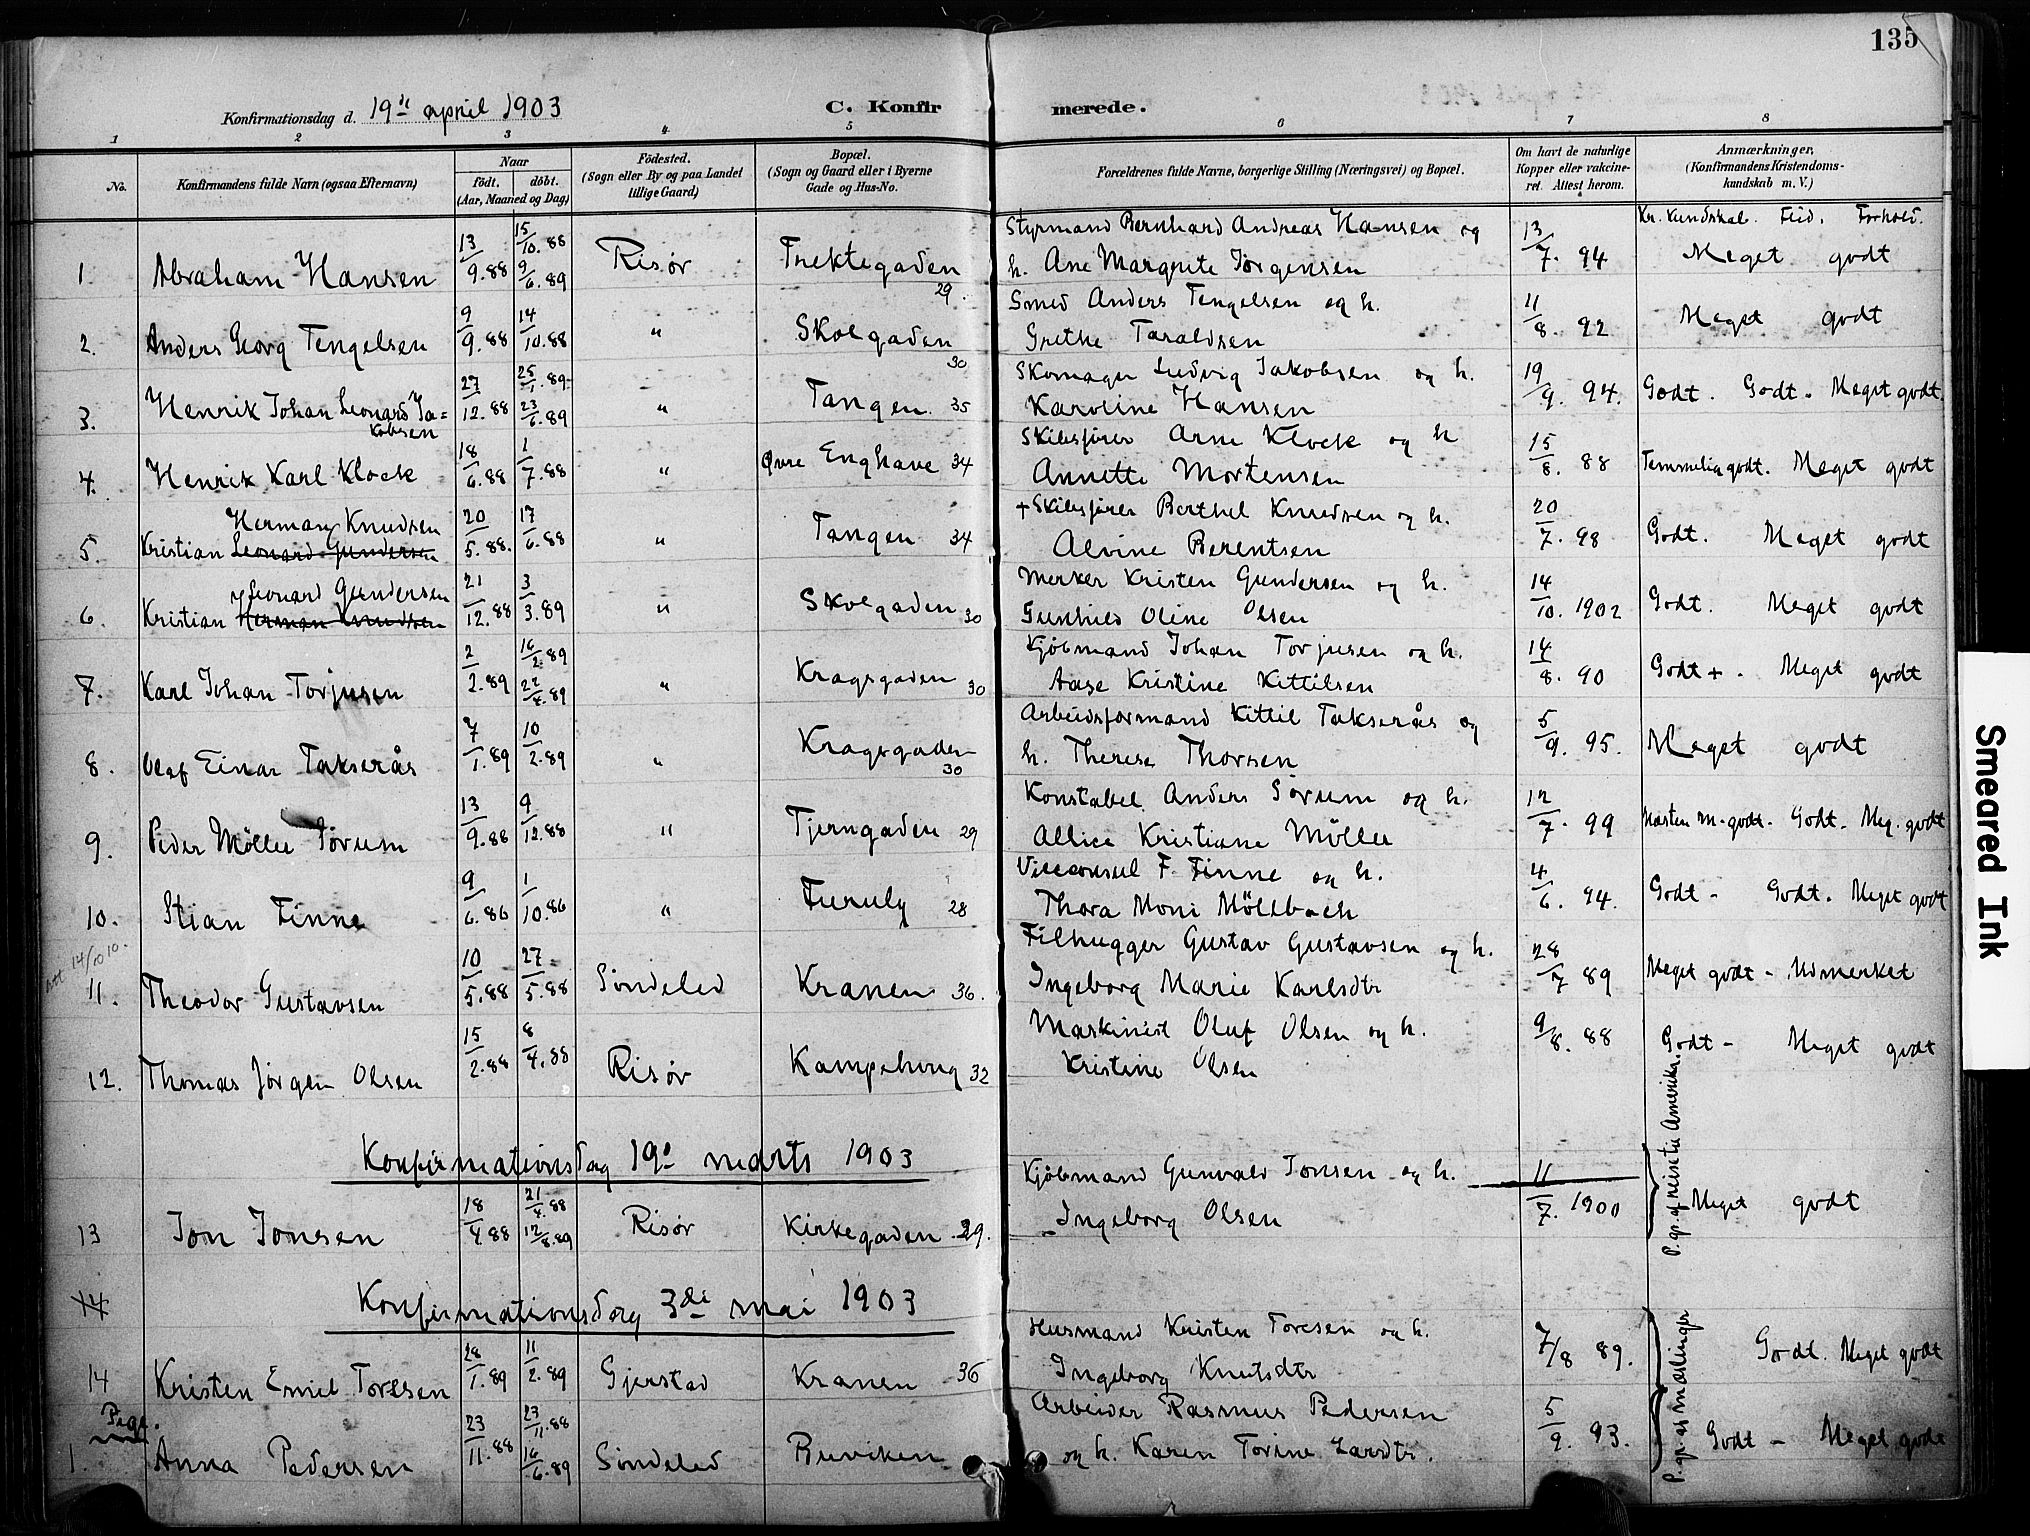 135
Konfirmationsdag d. 19de april 1903 C. Konfirmerede.
1 2 3 4 5 6 7 8
No. Konfirmandens fulde Navn (ogsaa Efternavn) Naar født. døbt. (Aar, Maaned og Dag) Fødested. (Sogn eller By og paa Landet tillige Gaard) Bopæl. (Sogn og Gaard eller i Byerne Gade og Hus-No. Forældrenes fulde Navne, borgerlige Stilling (Næringsvei) og Bopæl. Om havt de naturlige Kopper eller vakcineret. Attest herom. Anmærkninger, (Konfirmandens Kristendomskundskab m. V.)
Kr. kundskab. Flid. Forhold.
1. Abraham Hansen 13/9.88 15/10.88 9/6.89 Risør Trektegaden 29. Styrmand Bernhard Andreas Hansen og h. Ane Margrete Jørgensen 13/7.94 Meget godt
2. Anders Georg Tengelsen 9/9.88 14/10.88 " Skolgaden 30 Smed Anders Tengelsen og h. Grethe Taraldsen 11/8.92 Meget godt
3. Henrik Johan Leonard Jakobsen 27/12.88 25/1.89 23/6.89 " Tangen 35 Skomager Ludvig Jakobsen og h. Karoline Hansen 19/9.94. Godt. Godt. Meget godt.
4. Henrik Karl Klock 18/6.88 1/7.88 " Øvre Enghave 34 Skibsfører Arne Klock og h Annette Mortensen 15/8.88 Temmelig godt. Meget godt
5. Kristian Leonard Gundersen Herman Knudsen 20/5.88. 17/6.88 " Tangen 34 + Skibsfører Berthel Knudsen og h. Alvine Berentsen 20/7.98 Godt. Meget godt
6. Kristian Herman Knudsen Leonard Gundersen 21/12.88 3/3.89 " Skolgaden 30 Merker Kristen Gundersen og h. Gunhild Oline Olsen 14/10.1902 Godt. Meget godt
7. Karl Johan Torjusen 2/2.89 16/2.89 22/4.89 " Kragsgaden 30 Kjøbmand Johan Torjusen og h. Aase Kristine Kittilsen 14/8.90 Godt +. Meget godt
8. Olaf Einar Takserås 7/1.89 10/2.89 " Kragsgaden 30 Arbeidsformand Kittil Takserås og h. Therese Thorsen 5/9.95. Meget godt
9. Peder Møller Sørum 13/9.88 9/12.88 " Tjerngaden 29 Konstabel Anders Sørum og h. Allice Kristiane Møller 12/7.99 Næsten m. godt. Godt. Meg. godt
10. Stian Finne 9/6.86 1/10.86 " Furuly 28 Vicekonsul F. Finne og h. Thora Moni Möllbach 4/6.94. Godt - Godt. Meget godt
14/10 10.
11. Theodor Gustavsen 10/5.88 27/5.88 Søndeled Kranen 36. Filhugger Gustav Gustavsen og h. Ingeborg Marie Karlsdtr 28/7 89 Meget godt - Udmerket
12. Thomas Jørgen Olsen 15/2.88 8/4.88 Risør Kampehoug 32 Maskinist Oluf Olsen og h. Kristine Olsen 9/8.88 Godt - Meget godt
Konfirmationsdag 19de marts 1903
13 Jon Jonsen 18/4 88 21/4.88 12/8.89 Risør Kirkegaden 29. Kjøbmand Gunvald Jonsen og h. Ingeborg Olsen 11/7.1900 P. gr. af reise til Amerika. Meget godt
14 Konfirmationsdag 3die mai 1903
14 Kristen Emil Toresen 28/1.89 11/2.89 Gjerstad Kranen 36 Husmand Kristen Toresen og h. Ingeborg Knutsdtr 7/8 89. P. gr. as mæslinger Godt. Meget godt
Pige.
1. Anna Pedersen 23/11.88 23/11.88 16/6.89 Søndeled Buviken Arbeider Rasmus Pedersen og h. Karen Torine Larsdtr. 5/9.93. Godt - Meget godt
Smeared Ink